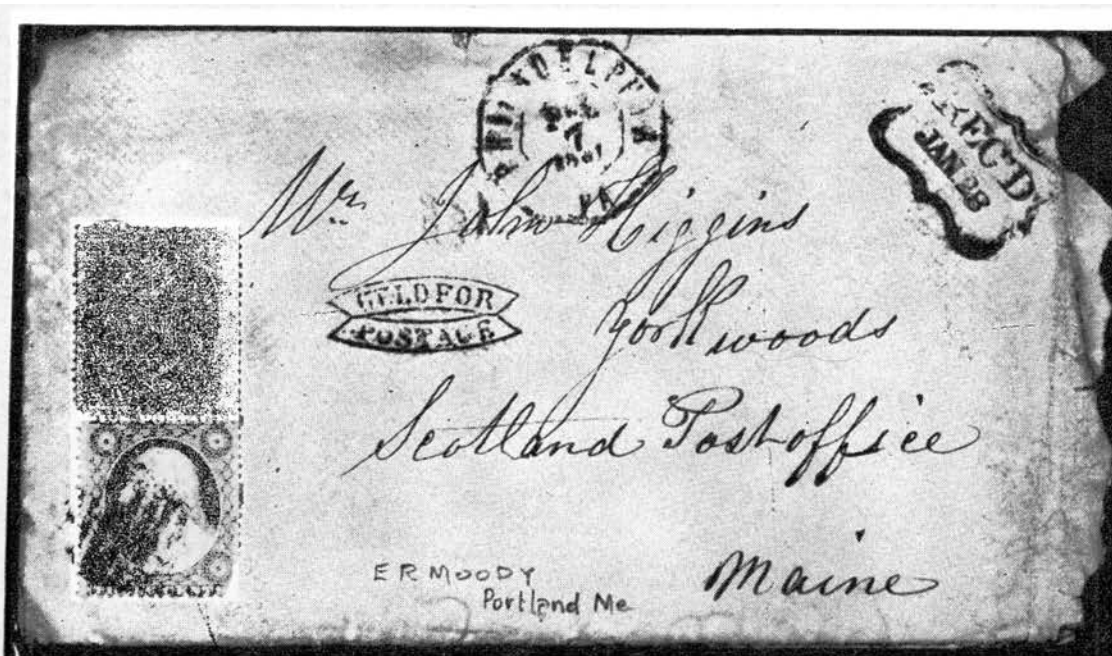 PHILADELPHIA
7
1861
PA
REC'D
JAN 28
Mr. John Higgins
HELD FOR
POSTAGE
York woods
Scotland Post office
Maine
E R MOODY
Portland Me